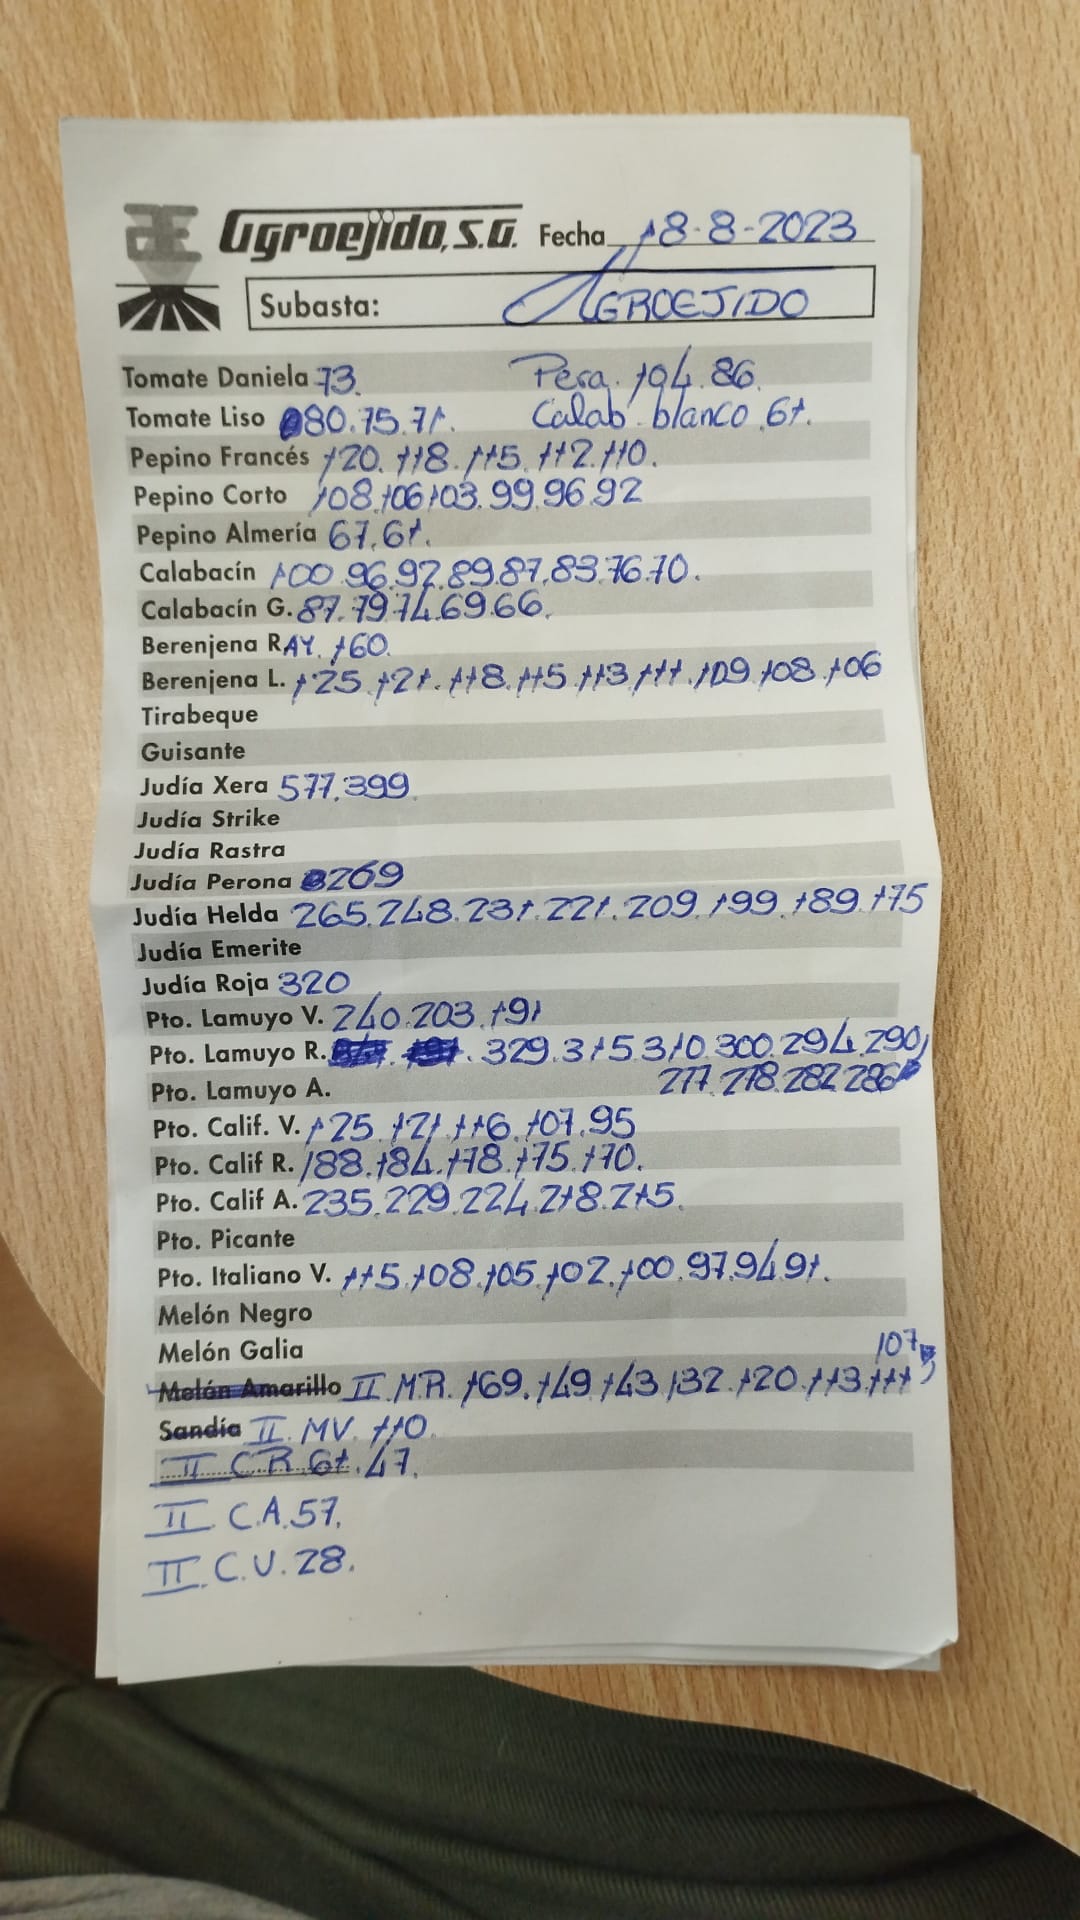 Agroejido, S.A. Fecha 18-8-2023
Subasta: AGROEJIDO
Tomate Daniela 73. Pera. 104.86.
Tomate Liso 80.75.71. Calab. blanco.61.
Pepino Francés 120.118.115.112.110.
Pepino Corto 108.106.103.99.96.92
Pepino Almería 67.61.
Calabacín 100.96.92.89.87.83.76.70.
Calabacín G. 87.79.74.69.66.
Berenjena RAY. 160.
Berenjena L. 125.121.118.115.113.111.109.108.106
Tirabeque
Guisante
Judía Xera 577.399.
Judía Strike
Judía Rastra
Judía Perona 269
Judía Helda 265.248.231.221.209.199.189.175
Judía Emerite
Judía Roja 320
Pto. Lamuyo V. 240.203.191
Pto. Lamuyo R. 329.315.310.300.294.290
Pto. Lamuyo A. 277.278.282.286
Pto. Calif. V. 125.121.116.107.95
Pto. Calif R. 188.184.178.175.170.
Pto. Calif A. 235.229.224.218.215.
Pto. Picante
Pto. Italiano V. 115.108.105.102.100.97.94.91.
Melón Negro
Melón Galia
107
Melón Amarillo II M.R. 169.149.143.132.120.113.111
Sandía II. MV. 110.
II C R 61.47.
II C.A.57.
II.C.V.28.